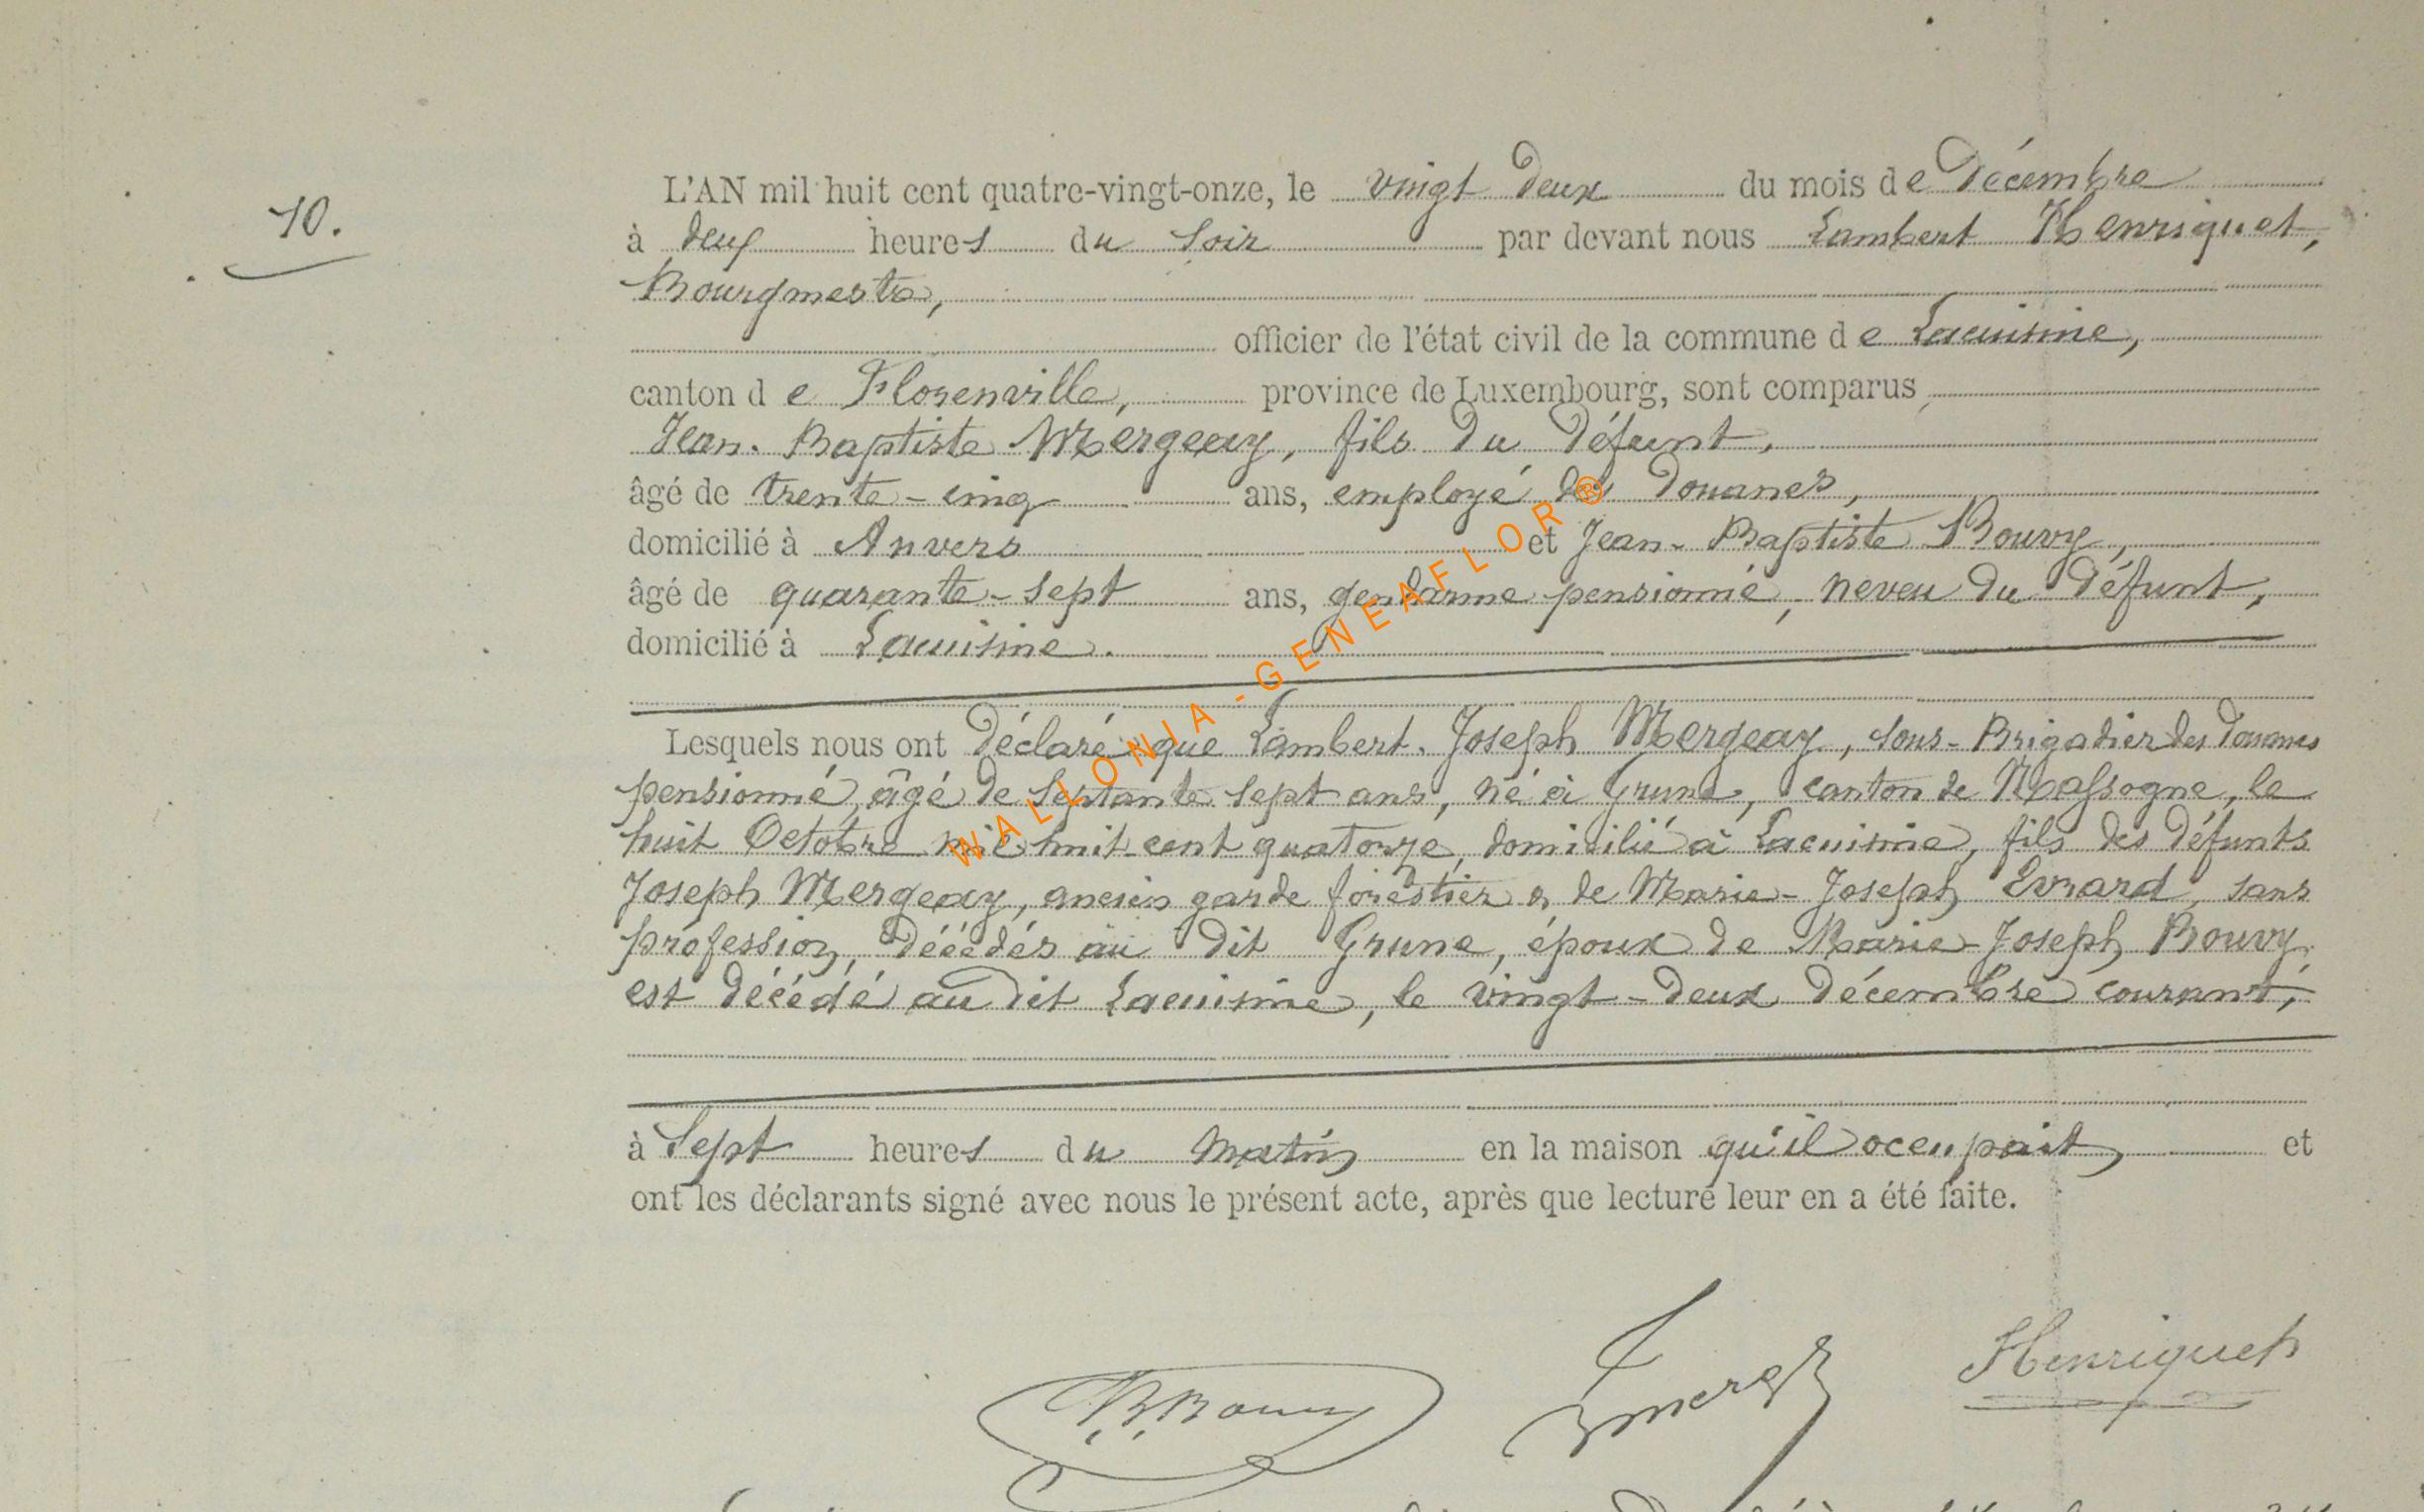 10.
L'AN mil huit cent quatre-vingt-onze, le vingt deux du mois de Décembre
à deux heures du soir par devant nous Lambert Henriquet,
Bourgmestre,
officier de l'état civil de la commune de Lacuisine,
canton de Florenville, province de Luxembourg, sont comparus
Jean-Baptiste Mergeay, fils du défunt,
âgé de trente-cinq ans, employé des Douanes,
domicilié à Anvers et Jean-Baptiste Bouvy,
âgé de quarante-sept ans, gendarme pensionné, neveu du défunt,
domicilié à Lacuisine.
Lesquels nous ont déclaré que Lambert-Joseph Mergeay, sous-Brigadier des Douanes
pensionné, âgé de septante sept ans, né à Grune, canton de Nassogne, le
huit Octobre mil huit cent quatorze, domicilié à Lacuisine, fils des défunts
Joseph Mergeay, ancien garde forestier & de Marie-Joseph Evrard, sans
profession, décédés au dit Grune, époux de Marie-Joseph Bouvy,
est décédé au dit Lacuisine, le vingt-deux décembre courant,
à sept heures du matin en la maison qu'il occupait, et
ont les déclarants signé avec nous le présent acte, après que lecture leur en a été faite.
Henriquet
WALLONIA-GENEAFLOR®